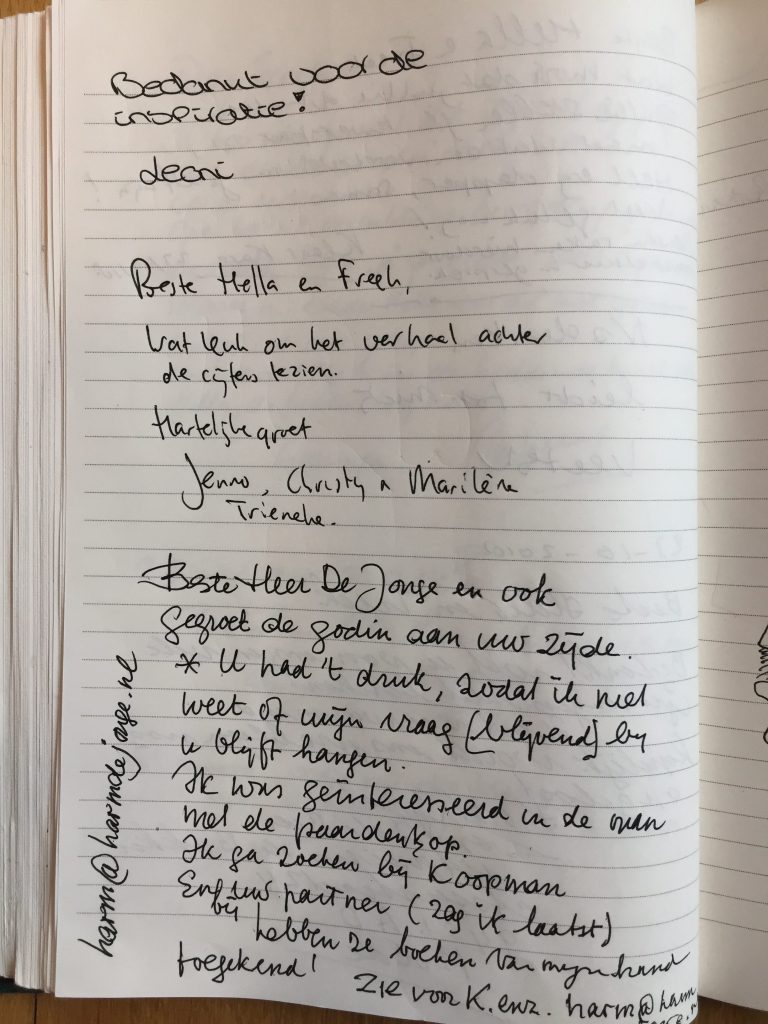 Bedankt voor de
inspiratie!
Leoni
Beste Hella en Freek,
Wat leuk om het verhaal achter
de cijfers te zien.
Hartelijke groet
Jenno, Christy n Marilène
Trieneke.
Beste Heer De Jonge en ook
gegroet de godin aan uw zijde.
* U had 't druk, zodat ik niet
weet of mijn vraag [blijvend] bij
u blijft hangen.
Ik was geïnteresseerd in de man
met de paardenkop.
Ik ga zoeken bij Koopman
En uw partner (zag ik laatst)
bij hebben ze boeken van mijn hand
toegekend!
Zie voor K. enz. harm@harm
harm@harmdejonge.nl